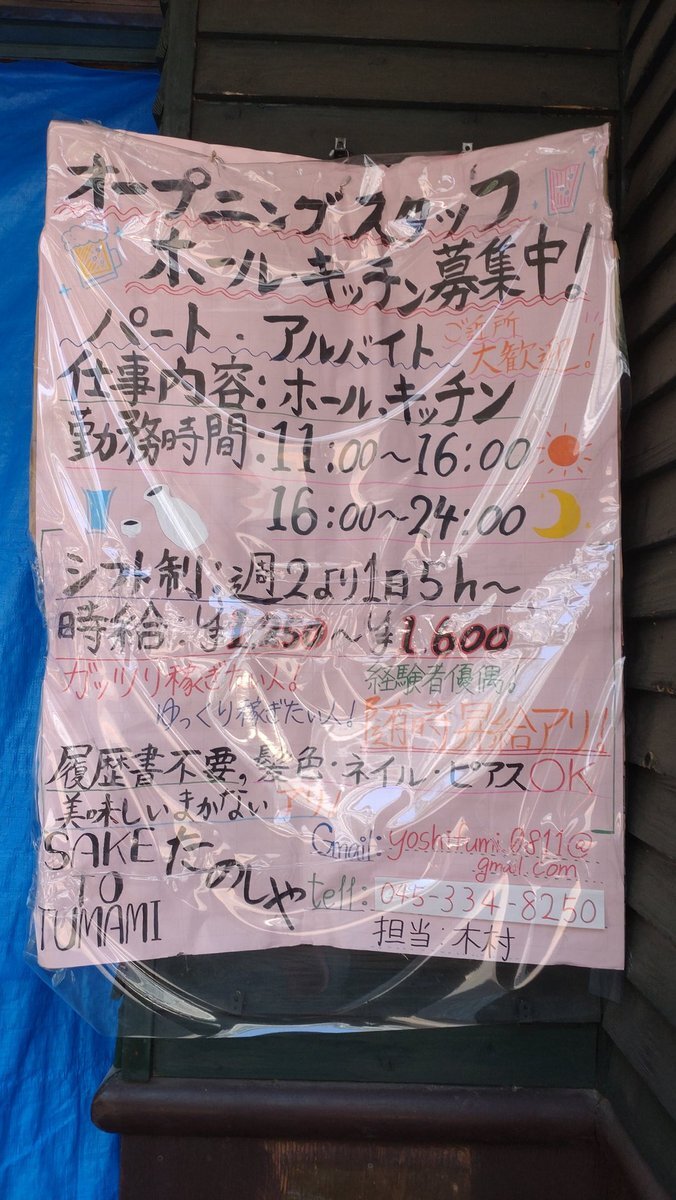 オープニングスタッフ
ホール・キッチン募集中!
パート・アルバイト
ご近所
大歓迎!
仕事内容:ホール、キッチン
勤務時間:11:00〜16:00
16:00〜24:00
シフト制:週2より1日5h〜
時給:¥1,250〜¥1,600
ガッツリ稼ぎたい人!
経験者優偶!
ゆっくり稼ぎたい人!
随時昇給アリ!
履歴書不要,髪色・ネイル・ピアスOK
美味しいまかないアリ!
SAKE
TO
TUMAMI
たのしや
Gmail:yoshifumi.0811@
gmail.com
tell:045-334-8250
担当:木村